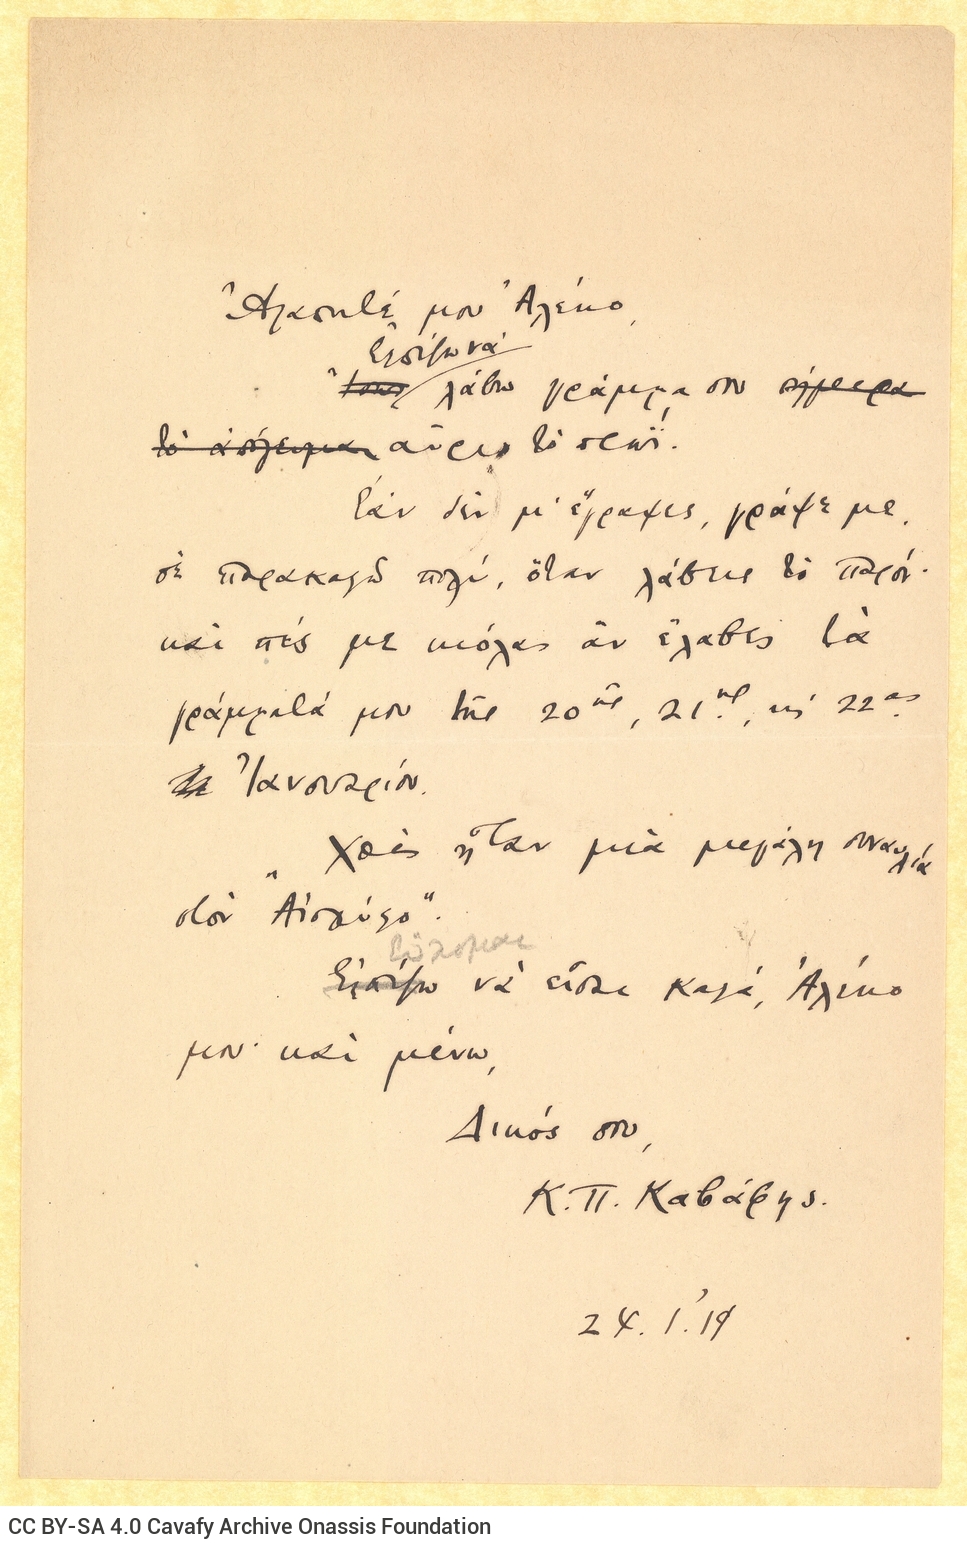 Ἀγαπητέ μου Ἀλέκο,
Ἐλπίζω νὰ
Ἴσως λάβω γράμμα σου σήμερα
τὸ ἀπόγευμα αὔριο τὸ πρωΐ.
Ἐὰν δὲν μ' ἔγραψες, γράψε με,
σὲ παρακαλῶ πολύ, ὅταν λάβεις τὸ παρόν·
καὶ πές με κιόλας ἂν ἔλαβες τὰ
γράμματά μου τῆς 20ῆς, 21ης, κι 22ας
Ἰανουαρίου.
Χθὲς ἦταν μιὰ μεγάλη συναυλία
στὸν "Αἰσχύλο".
Εὔχομαι
Ἐλπίζω νὰ εἶσαι καλά, Ἀλέκο
μου· καὶ μένω,
Δικός σου,
Κ. Π. Καβάφης.
24.1.'19
CC BY-SA 4.0 Cavafy Archive Onassis Foundation